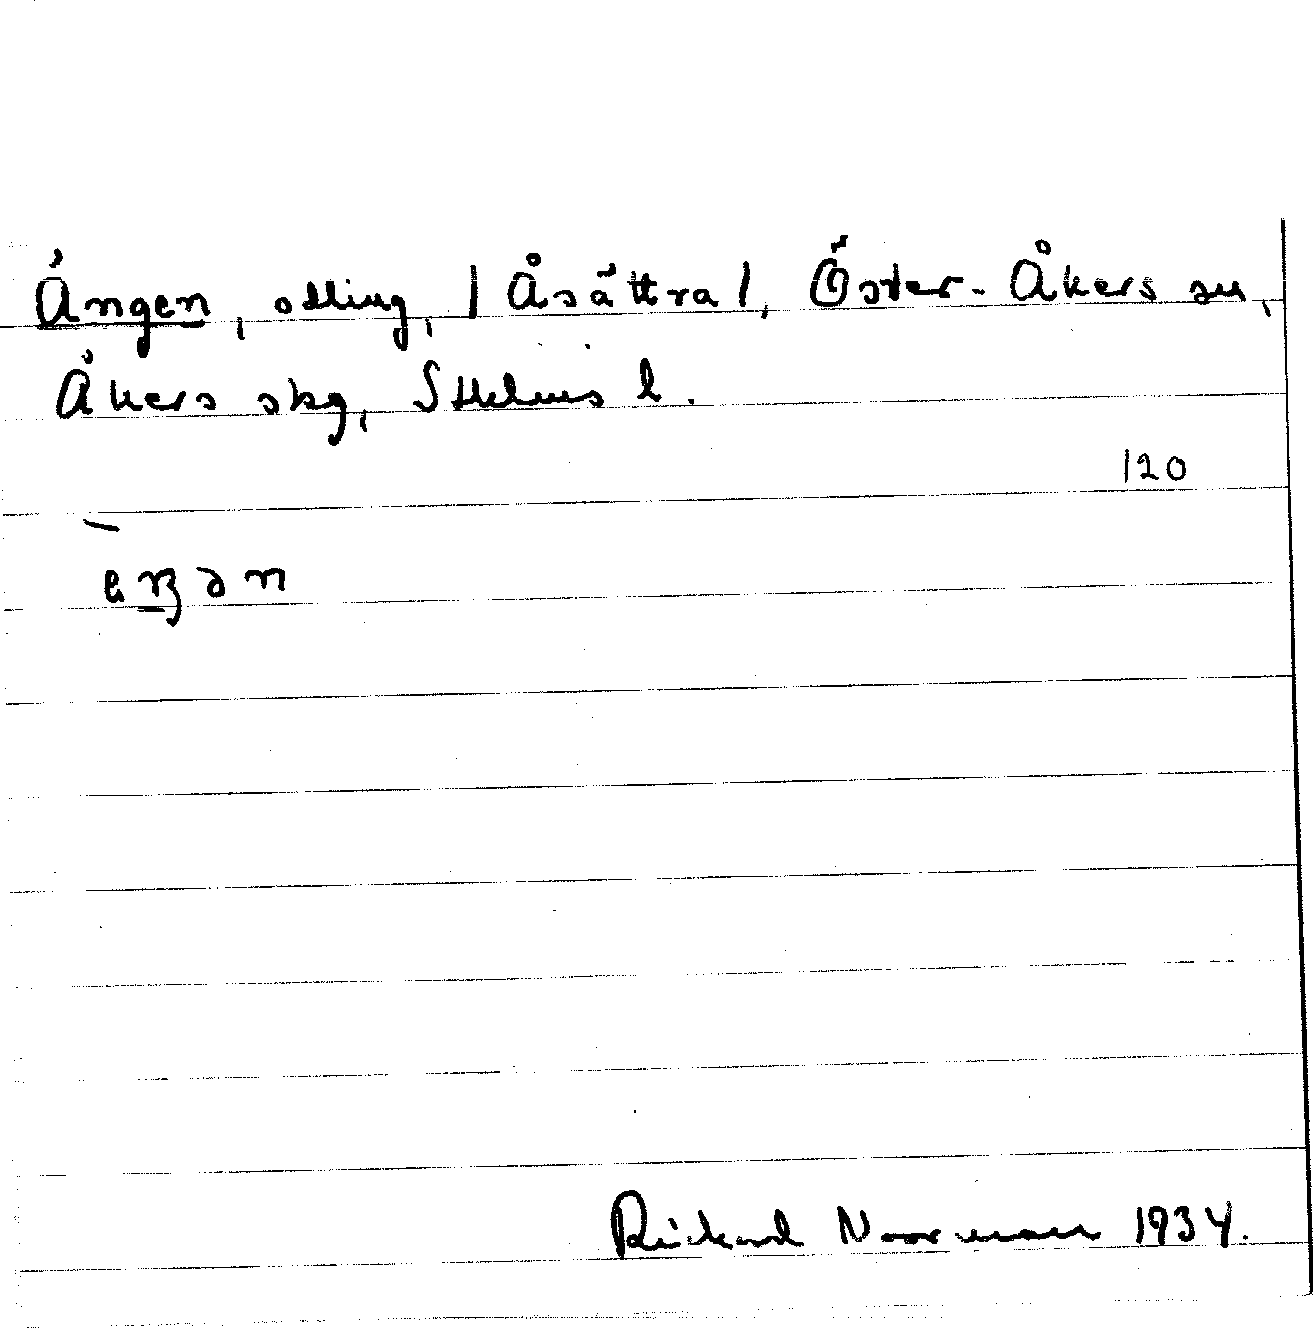 Ängen, odling, /Åsättra/, Öster-Åkers sn,
Åkers skg, Sthlms l.
120
Rickard Norman 1934.